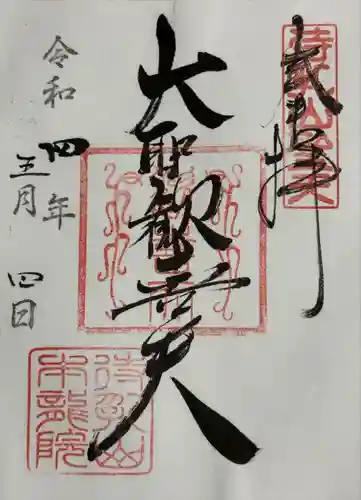 奉拝
大聖歓喜天
令和四年
五月四日
待乳山
本龍院